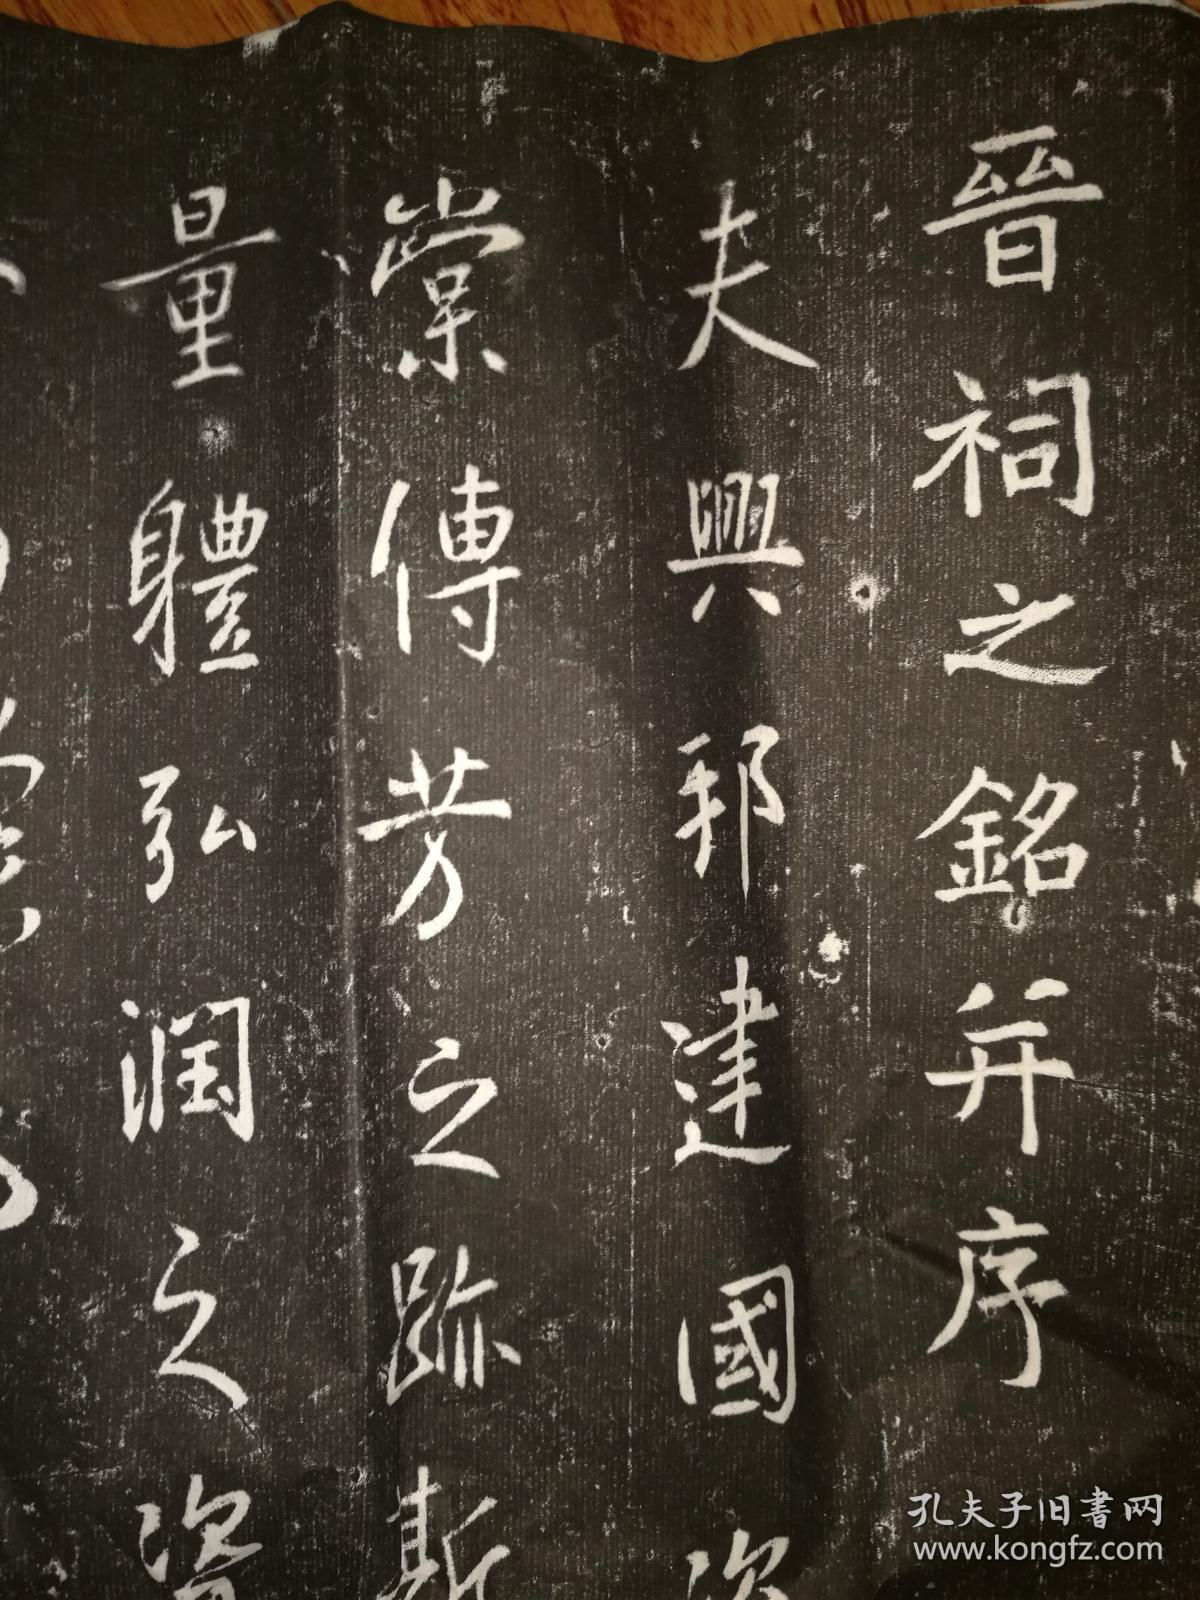 晉祠之銘并序
夫興邦建國
棠傳芳之跡斯
量體弘润之資
孔夫子旧書网
www.kongfz.com